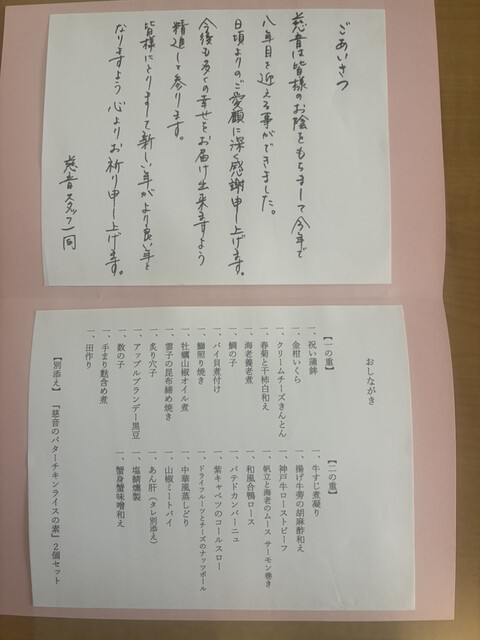 ごあいさつ
慈音は皆様のお陰をもちまして今年で
八年目を迎える事ができました。
日頃よりのご愛顧に深く感謝申し上げます。
今後も多くの幸せをお届け出来ますよう
精進して参ります。
皆様にとりまして新しい年がより良い年と
なりますよう 心よりお祈り申し上げます。
慈音スタッフ一同
おしながき
【一の重】
一、祝い蒲鉾
一、金柑いくら
一、クリームチーズきんとん
一、春菊と干柿白和え
一、海老養老煮
一、鯛の子
一、バイ貝煮付け
一、鰤照り焼き
一、牡蠣山椒オイル煮
一、雲子の昆布締め焼き
一、炙り穴子
一、アップルブランデー黒豆
一、数の子
一、手まり麩含め煮
一、田作り
【二の重】
一、牛すじ煮凝り
一、揚げ牛蒡の胡麻酢和え
一、神戸牛ローストビーフ
一、帆立と海老のムース サーモン巻き
一、和風合鴨ロース
一、パテドカンパーニュ
一、紫キャベツのコールスロー
一、ドライフルーツとチーズのナッツボール
一、中華風蒸しどり
一、山椒ミートパイ
一、あん肝(タレ別添え)
一、塩鯖燻製
一、蟹身蟹味噌和え
【別添え】『慈音のバターチキンライスの素』2個セット